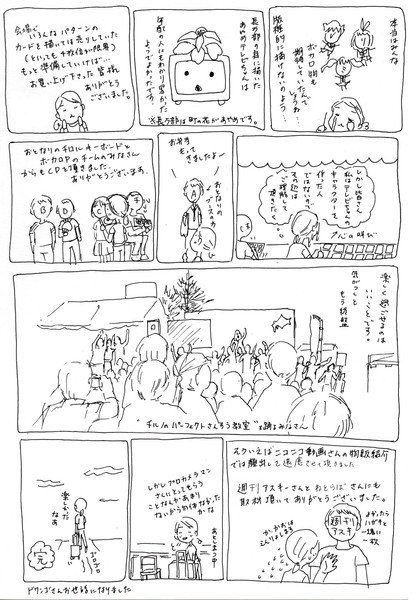 本当はみんな
ボカロ物も
期待していたんでしょうね
版権的に描けないのよう…
の為に描いた
テレビちゃんは
年配の人にもわかり易かった
ようでよかったです。
は町の花があやめです。
会場で
いろんなパターンの
カードを描いては売りしていた
(といっても十数枚が限界)
もっと準備していけば…
お買い上げ下さった皆様
ありがとう
ございました。
しかし皆さん
私はテレビちゃんの
作った人
ではないので
その辺は
ご理解して
頂きたく。
心の叫び
お弁当
もってきましたよー
おとなりの
ブースの
A
おとなりの
ボカロPのチームのみなさん
からもCDを頂きました。
ありがとうございます。
B
D
楽しく過ごせるのは
いいことです。
気がつくと
もう終盤
"チルノのパーフェクトさんすう教室"を踊るみなさん
そういえばニコニコ動画さんの物販紹介
では顔出しで遠慮させて頂きました。
週刊アスキーさんとおとうばさんにも
取材頂いてありがとうございました。
よかったら
ハガキと
一緒に
一枚
週刊
アスキー
しかしプロカメラマン
さんにとってもらう
ことなんかあまり
ないから勿体なかった
かな
あとしまつ中
楽しかった
なあ
完
ドワンゴさんお世話になりました